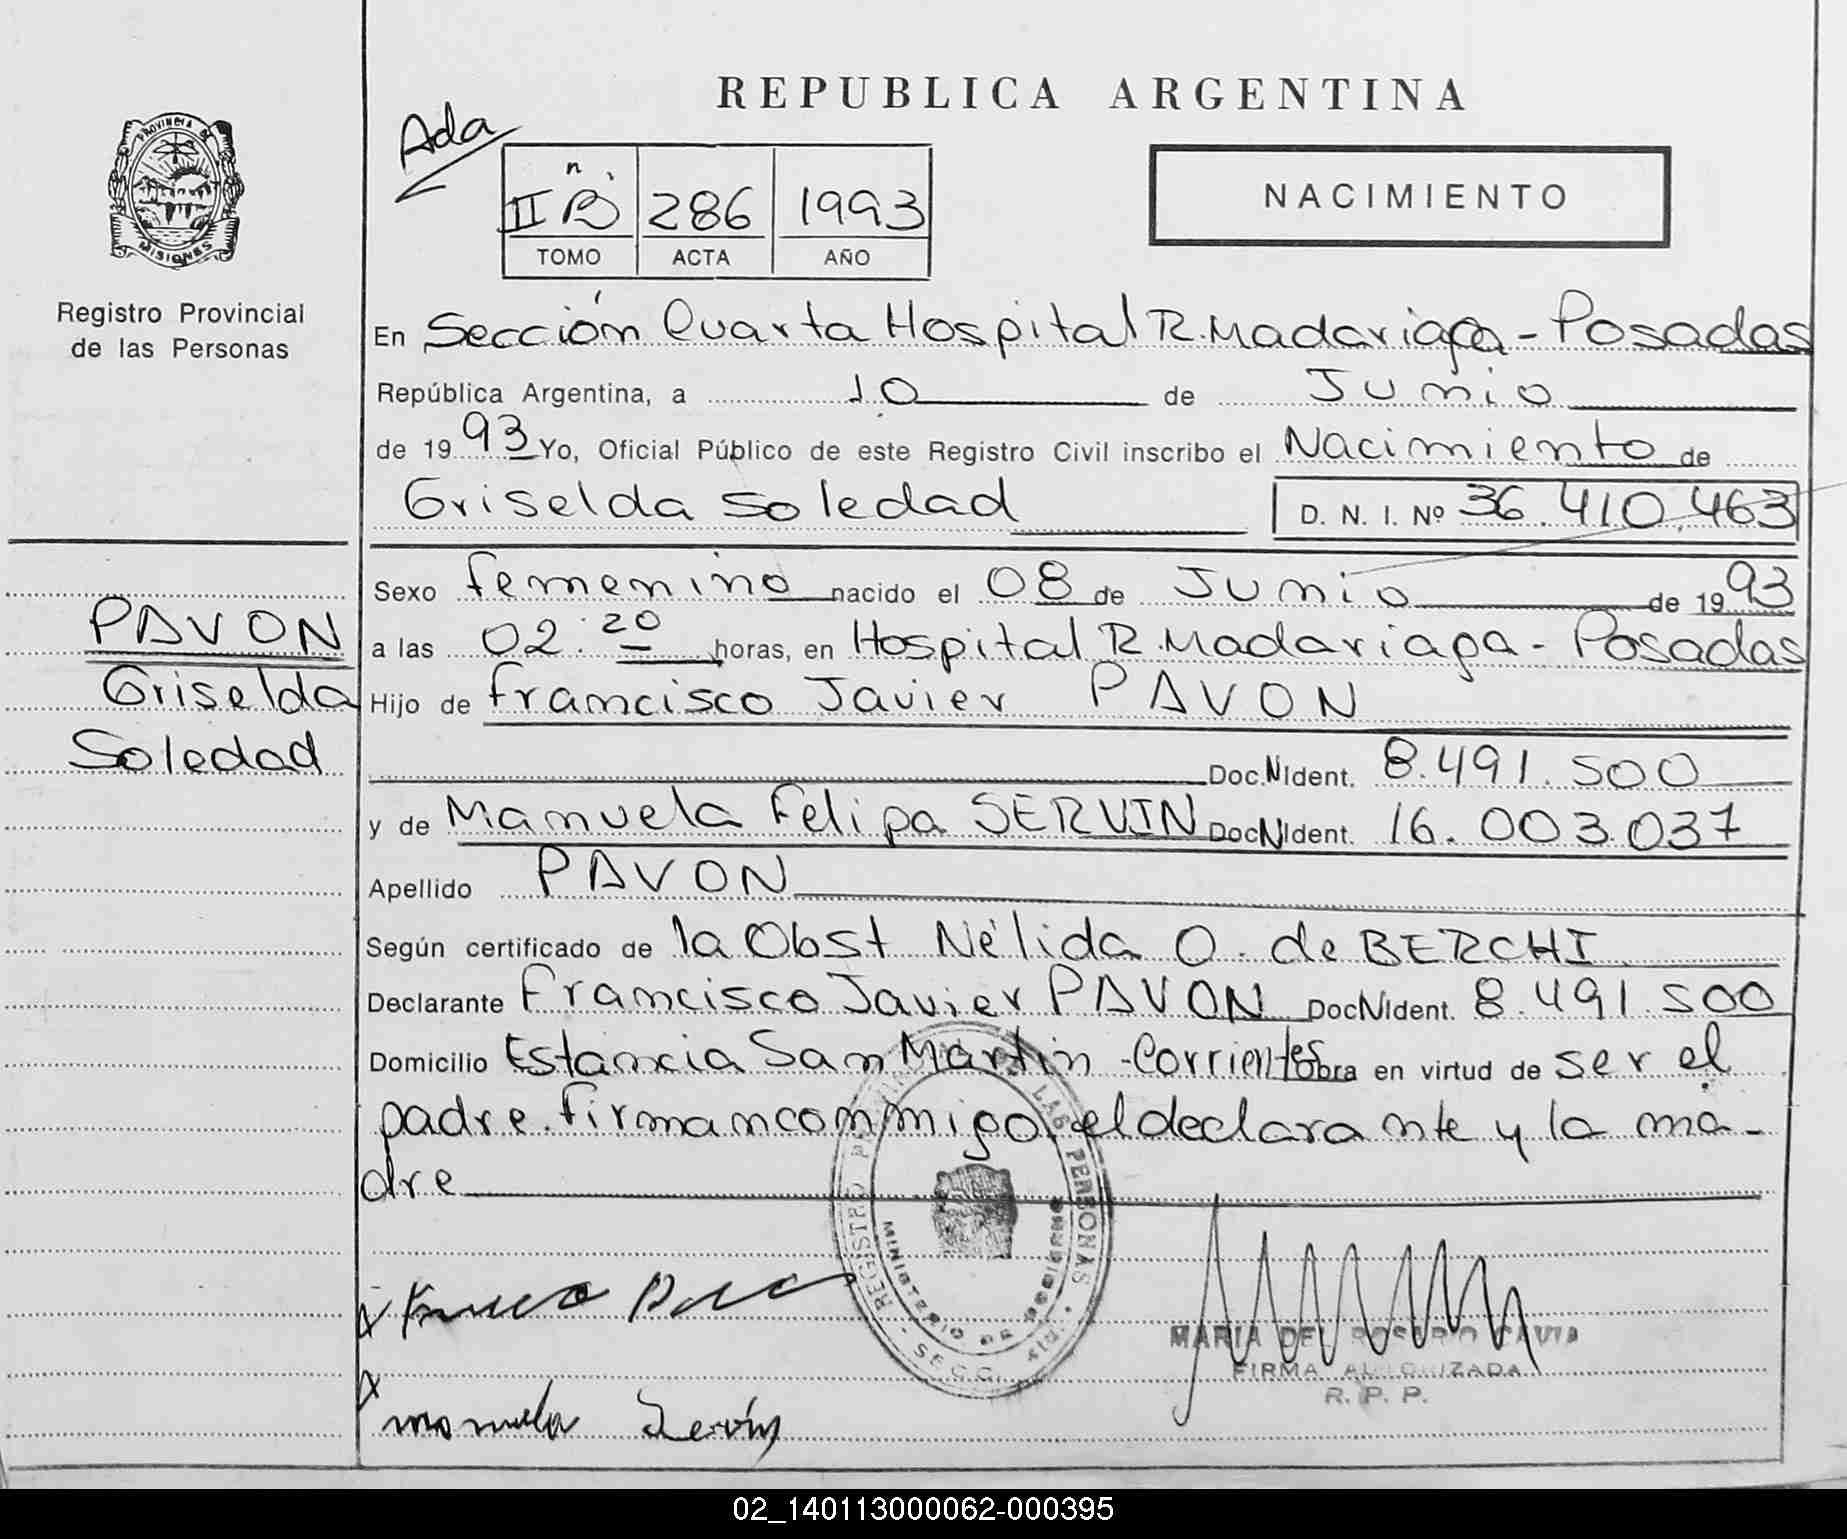 REPUBLICA ARGENTINA
Ada
PROVINCIA DE
MISIONES
II B
286
1993
TOMO
ACTA
AÑO
NACIMIENTO
Registro Provincial
de las Personas
En Sección Cuarta Hospital R. Madariaga - Posadas
República Argentina, a 10 de Junio
de 1993 Yo, Oficial Público de este Registro Civil inscribo el Nacimiento de
Griselda Soledad D. N. I. Nº 36.410.463
Sexo femenino nacido el 08 de Junio de 1993
a las 02:20 horas, en Hospital R. Madariaga - Posadas
PAVON
Griselda
Soledad
Hijo de Francisco Javier PAVON
Doc.N Ident. 8.491.500
y de Manuela Felipa SERVIN Doc N Ident. 16.003.037
Apellido PAVON
Según certificado de la Obst Nélida O. de BERCHI
Declarante Francisco Javier PAVON Doc N Ident. 8.491.500
Domicilio Estancia San Martin - Corrientes obra en virtud de ser el
padre. Firman conmigo, el declarante y la ma-
dre
REGISTRO LAS PERSONAS
MINISTERIO DE GOBIERNO
Manuela Servin
MARIA DEL ROSARIO CAVIA
FIRMA AUTORIZADA
R. P. P.
02_140113000062-000395